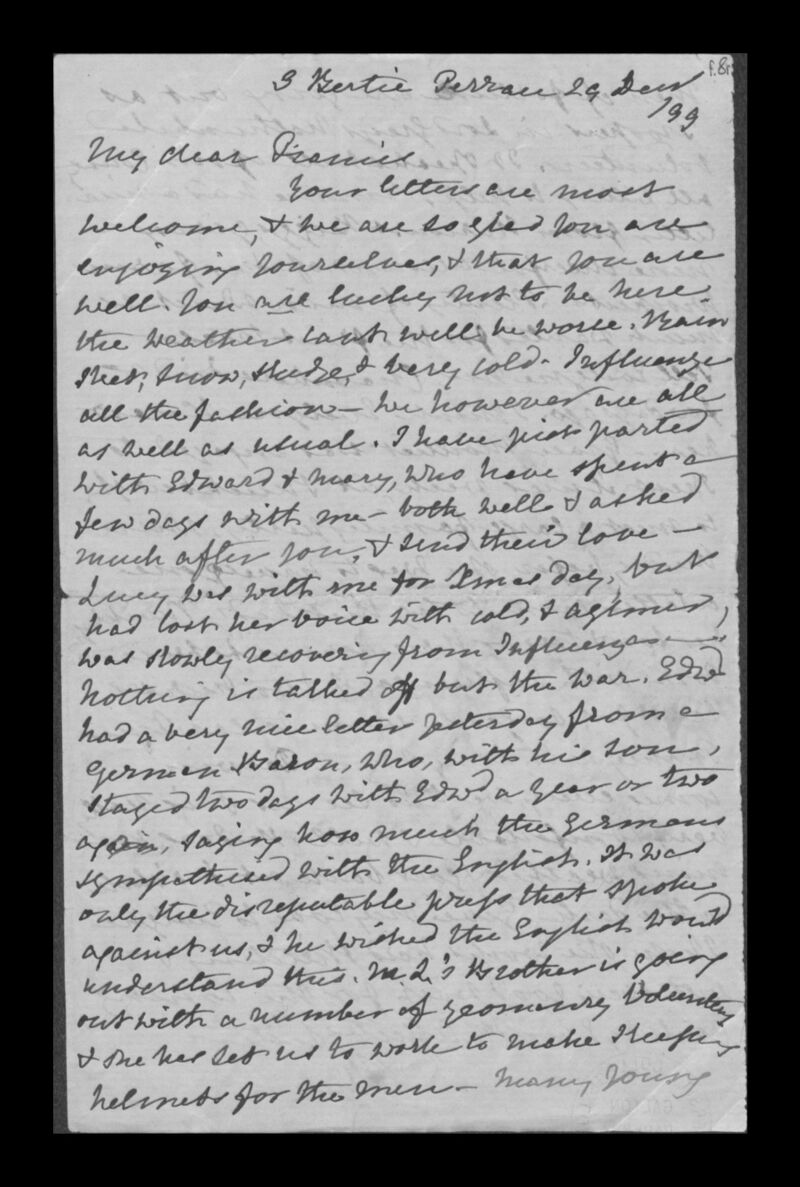 f.8r
3 Bertie Terrace 29 Decr
/99
My dear Francis
Your letters are most
welcome, & we are so glad you are
enjoying yourselves, & that you are
well. You are lucky not to be here
the weather cant well be worse. Rain
sleet, snow, sludge, & very cold. Influenza
all the fashion – We however are all
as well as usual. I have just parted
with Edward & Mary, who have spent a
few days with me – both well & asked
much after you, & send their love –
Lucy was with me for Xmas day, but
had lost her voice with cold, &
was slowly recovering from Influenza –
Nothing is talked off but the war. Edwd
had a very nice letter yesterday from a
German Baron, who, with his son,
stayed two days with Edwd a year or two
again, saying how much the Germans
sympathised with the English. It was
only the disreputable press that spoke
against us, & he wished the English would
understand this. M.L's Brother is going
out with a number of yeomanry Volunteers
& she has set us to work to make sleeping
helmets for the men – Many young